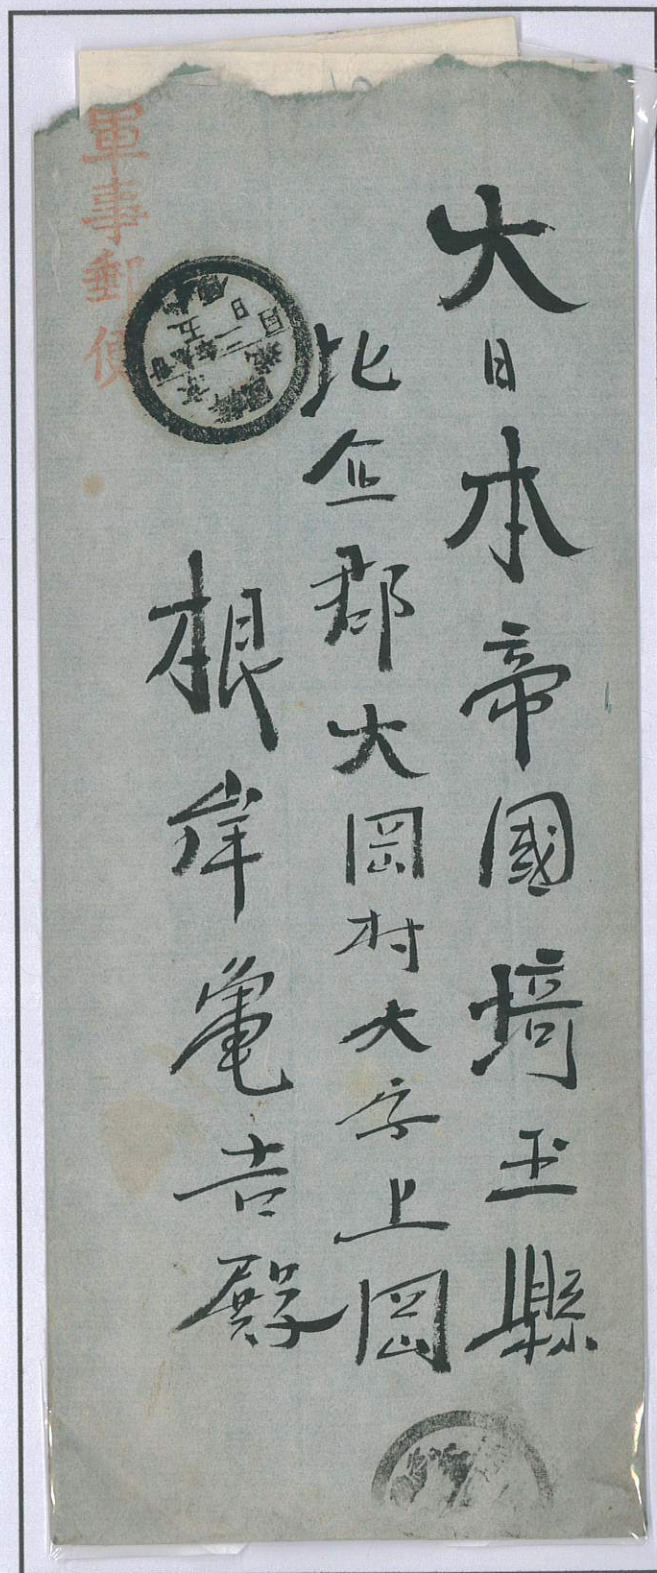 大日本帝國埼玉縣
比企郡大岡村大字上岡
根岸亀吉殿
軍事郵便